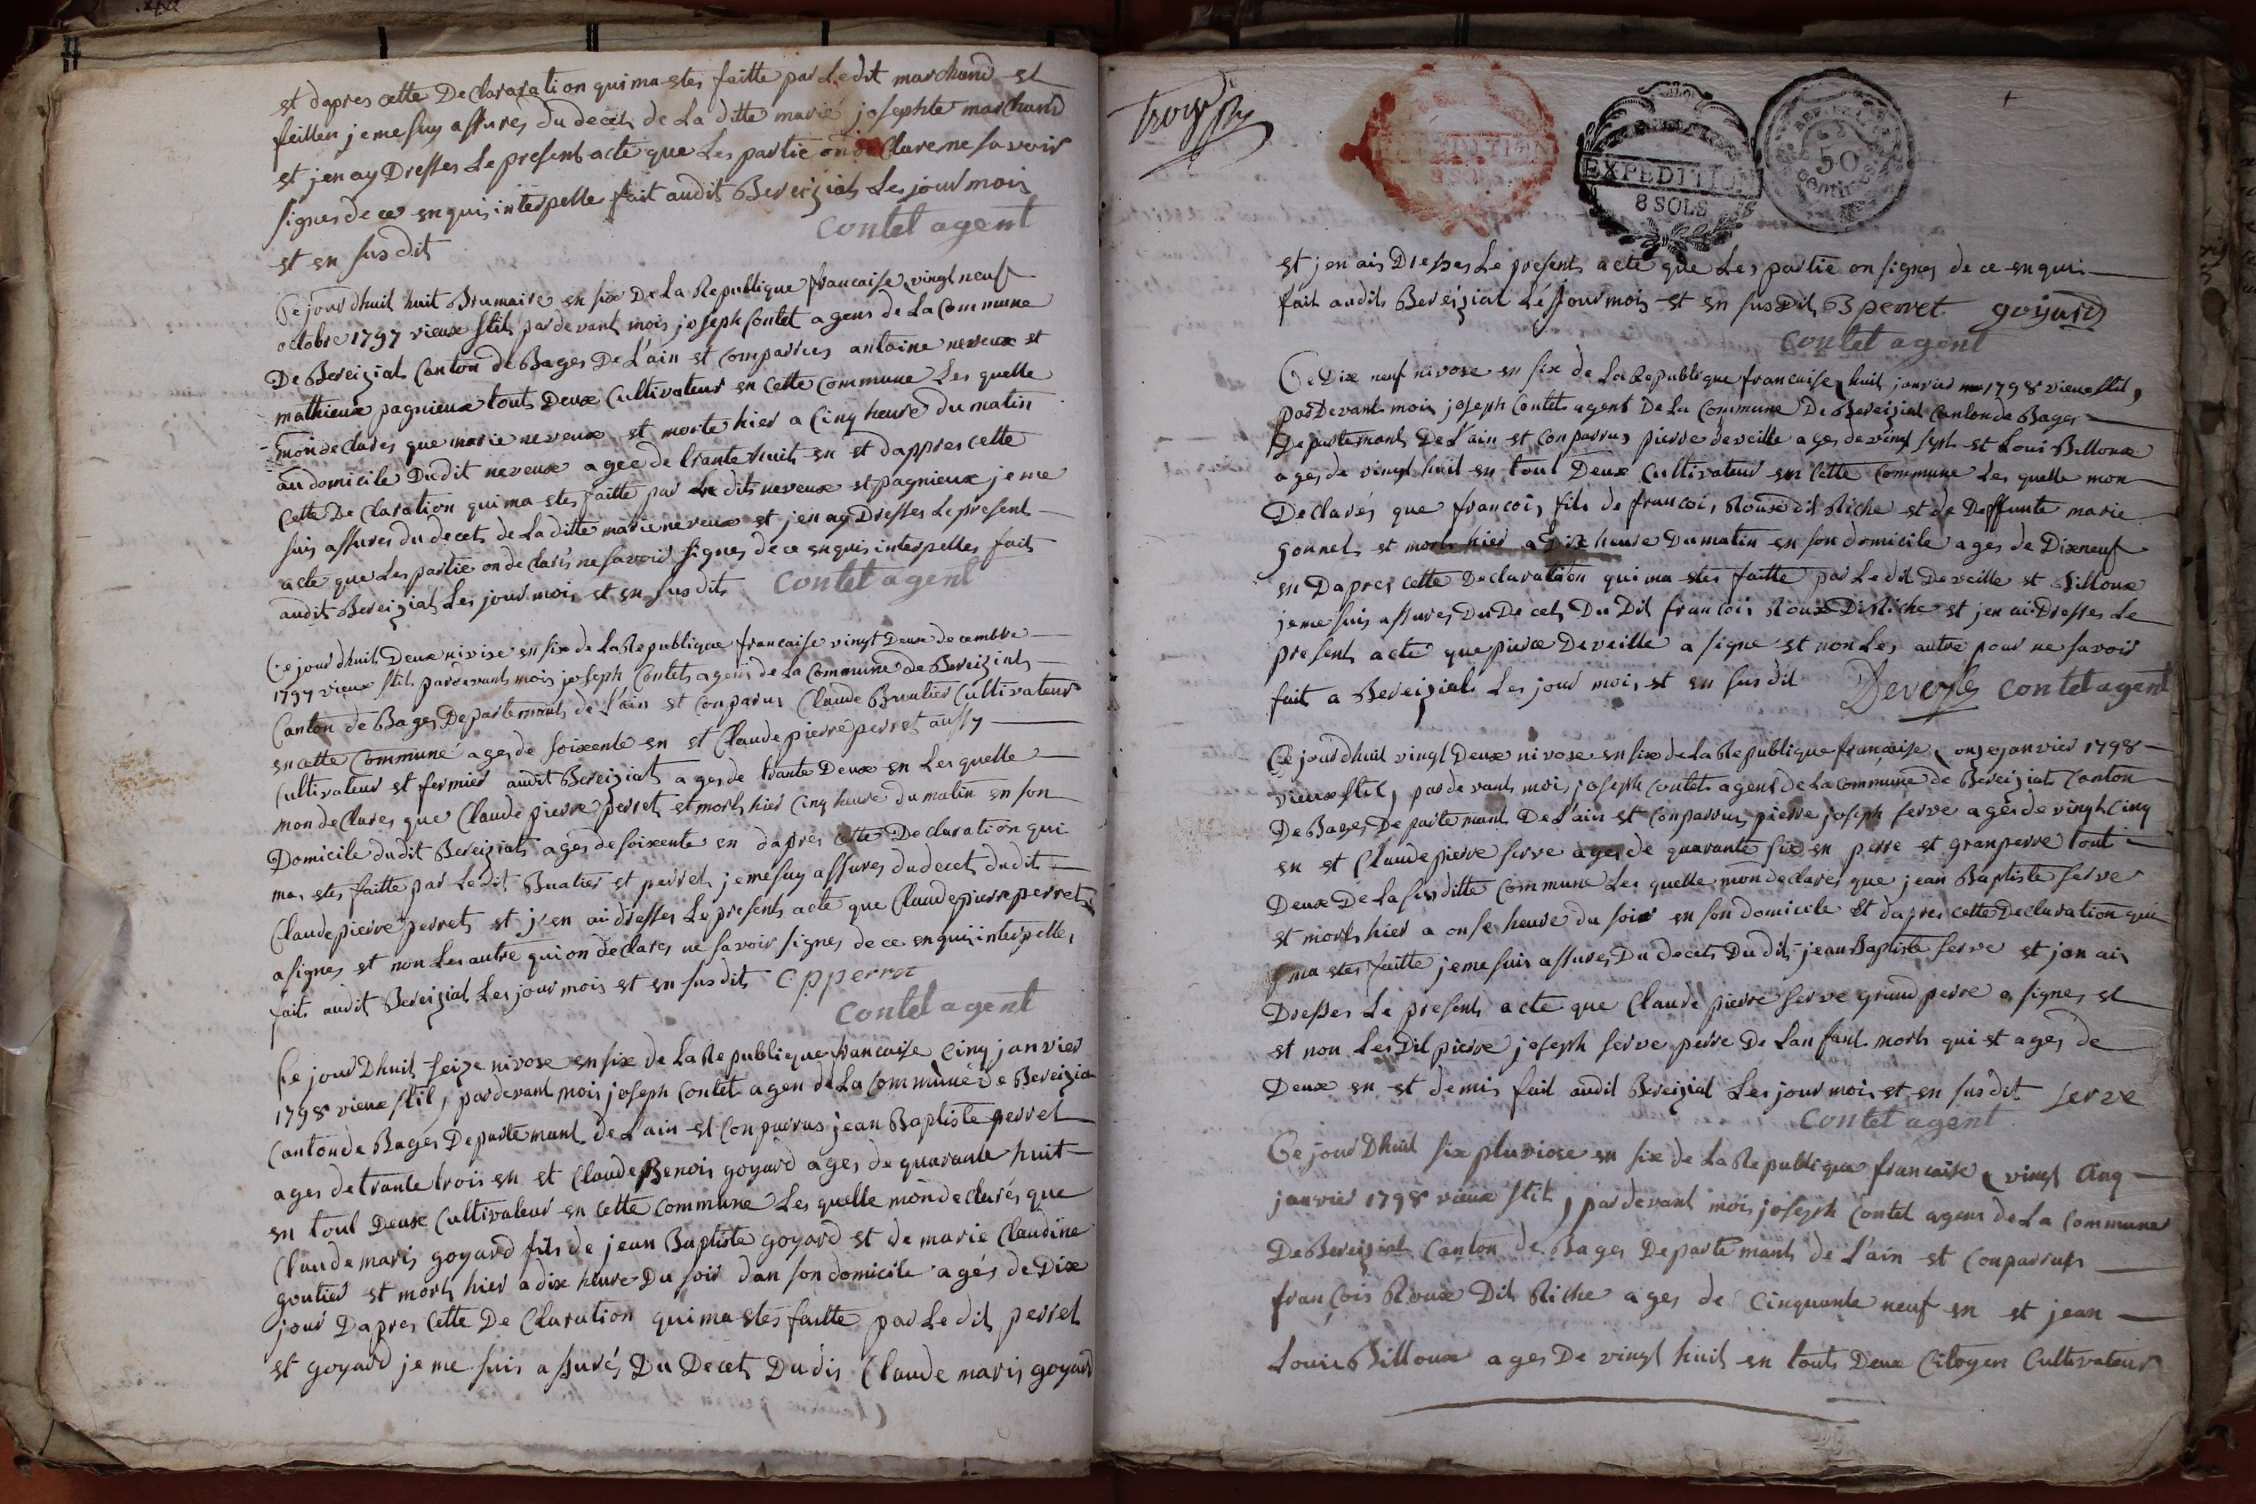 et dapres cette Declaration qui ma estes faitte par Ledit marchand et
feillen je me suy assures du decet de La ditte marie josephte marchand
et jen ay Dresses Le present acte que Les partie on de Clare ne savoir
signes de ce enquis interpelle fait audit Bereiziat Les jour mois
et en susdit
Contet agent
Ce jourdhuit huit Brumaire en six De La Republique francaise vingt neuf
octobre 1797 vieux stil pardevant mois joseph Contet agens de La Commune
De Bereiziat Canton de Bages De L'ain et comparrues antoine neveux et
mathieux pagnieux touts Deux Cultivateur en Cette Commune Les quelle
mon de clares que marie neveux et morte hier a Cinq heure du matin
au domicile Dudit neveux agee de trante huit en et dappres cette
Cette De Claration qui ma estes faitte par Le dits neveux et pagnieux je me
suis assures du decets de La ditte marie neveux et jen ay Dresses Le present
acte que Les partie on de clares ne savoir signes de ce enquis interpelles fait
audit Bereiziat Les jour mois et en susdits Contet agent
Ce jourdhuit Deux nivise en six de La Republique francaise vingt Deux decembre
1797 vieux stil pardevants mois joseph Contets agens de La Commune de Bereizints
Canton de Bages Departemants de L'ain et Conparus Claude Buatier Cultivateur
en cette Commune ages de soixente en et Claude pierre perret aussy
Cultivateur et fermier audit Bereiziats ages de trante Deux en Les quelle
mon de Clares que Claude pierre perret et morts hier Cinq heure du matin en son
Domicile dudit Bereiziats ages de soixente en dapres cette Declaration qui
ma estes faitte par Ledit Buatier et perret je me suy assures du decet dudit
Claude pierre perrets et jen ai dresses Le presents acte que Claude pierre perret
a signes et non Les autre qui on declares ne savoir signes de ce enquis interpelle,
fait audit Bereiziat Les jour mois et en susdit cpperret
Contet agent
Ce jour Dhuit seize nivose en six de La Republique francaise Cinq janvier
1798 vieux stil, pardevant mois joseph Contet agen de La Commune De Bereizia
Canton de Bages Departemant de L'ain et Conparrus jean Baptiste perret
ages de trante trois en et Claude Benois goyard ages de quarante huit
en tout Deux Cultivateur en Cette commune Les quelle mon de clarés que
Claude maris goyard fils de jean Baptiste goyard et de marie Claudine
goutier et morts hier a dix heure Du soir dan son domicile agés de Dix
jour Dapres Cette De Claration qui ma estés faitte par Le dit perret
et goyard je me suis assurés Du Decet Du dis Claude maris goyard
Troys
EXPEDITION
8 SOLS
50
Centimes
et jen ais Dresses Le presents acte que Les partie on signes de ce enquis
fait audits Bereiziat Les jour mois et en susdit B perret goyard
Contet agent
Ce Dix neuf nivose en six de La Republique francaise huit janvier 1798 vieux stil,
par Devant mois joseph Contet agent De La Commune De Bereiziat Canton de Bages
Departemant De L'ain et Conparrus pierre deveille ages de vingt sept et Loui Billoux
ages de vingt huit en tout Deux Cultivateur en Cette Commune Les quelle mon
Declarés que francois fils de francois Roux dit Riche et de Deffunte marie
gonnet et morts hier a Dix heure Du matin en son domicile ages de Dixneuf
en Dapres cette Declaration qui ma estes faitte par Le dit Deveille et Billoux
je me suis assures Du De cets Du Dit francois Roux Dit Riche et jen ai Dresses Le
present acte que pierre Deveille a signe et non Les autre pour ne savoir
fait a Bereiziat Les jour mois et en susdit Deveyle Contet agent
Ce jourdhuit vingt Deux nivose en six de La Republique francaise onze janvier 1798
vieux stil, pardevant mois joseph Contet agent de La commune de Bereiziat Canton
De Bages Departemant De L'ain et Conparrus pierre joseph serve agés de vingt Cinq
en et Claude pierre serve ages de quarante six en perre et granperre tout
Deux De La susditte Commune Les quelle mon declares que jean Baptiste serve
et morts hier a onse heure du soir en son domicile et dapres cette Declaration qui
ma estes faitte je me suis assures Du decets Dudit jean Baptiste serve et jen ais
Dresses Le presents acte que Claude pierre serve grand perre a signes et
et non Le Dit pierre joseph serve perre De Lanfant morts qui et ages de
Deux en et demis fait audit Bereiziat Les jour mois et en susdit serve
Contet agent
Ce jour Dhuit six pluviose en six de La Republique francaise vingt Cinq
janvier 1798 vieux stil, pardevant mois joseph Contet agens de La Commune
De Bereiziat Canton de Bages Departemants de L'ain et Conparrus
francois Roux Dit Riche ages de Cinquante neuf en et jean
Louis Billoux ages De vingt huit en touts Deux Citoyen Cultivateur